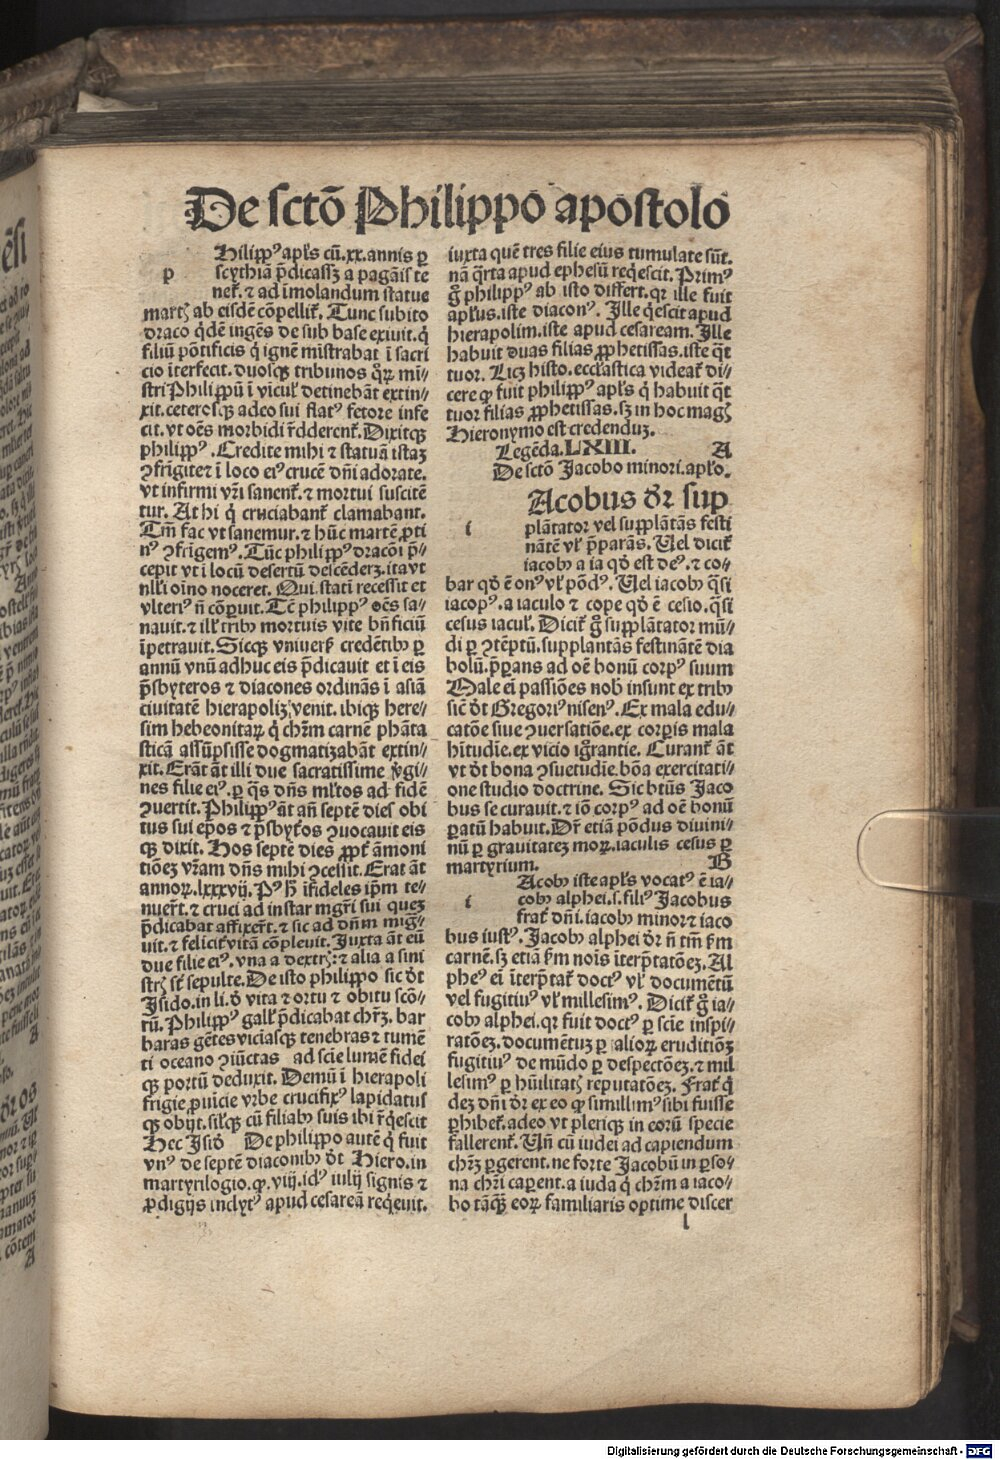 De sctō Philippo apostolo
Hilippꝰ apłs cū.xx.annis ꝑ
p scythiā p̄dicassꝫ a pagāis te
net̄. ⁊ ad īmolandum statue
martꝭ ab eisdē cōpellit̄. Tunc subito
draco q̇dē ingēs de sub base exiuit.q̇
filiū pōtificis q̇ ignē mīstrabat ī sacri
cio īterfecit. duosqꝫ tribunos qꝝ mi⸗
stri Philippū ī vicuł detinebāt extin⸗
xit.ceterosqꝫ adeo sui flatꝰ fetore infe
cit.vt oēs morbidi r̄dderent̄. Dixitqꝫ
philippꝰ. Credite mihi ⁊ statuā istaꝫ
ꝯfrīgite ⁊ ī loco eiꝰ crucē dn̄i adorate.
vt infirmi vr̄i sanent̄.⁊ mortui suscitē
tur. At hi q̇ cruciabant̄ clamabant.
Tm̄ fac vt sanemur.⁊ hūc martē ꝓti
nꝰ ꝯfrīgemꝰ. Tūc philippꝰ dracōi p̄⸗
cepit vt ī locū desertū descēderꝫ.ita vt
nłli oīno noceret. Qui statī recessit et
vlteriꝰ n̄ cōparuit. Tē philippꝰ oēs sa⸗
nauit.⁊ ill̓ tribꝫ mortuis vite bn̄ficiū
īpetrauit. Sicqꝫ vniuers̓ credētibꝫ ꝑ
annū vnū adhuc eis p̄dicauit et ī eis
p̄sbyteros ⁊ diacones ordinās ī asiā
ciuitatē hierapolꝫ venit. ibiqꝫ here⸗
sim hebeonitaꝝ q̇ chr̄m carnē phāta
sticā assūpsisse dogmatizabāt extin⸗
xit. Erāt āt illi due sacratissime v̓gi⸗
nes filie eiꝰ. ꝑ q̄s dn̄s ml̓tos ad fidē
ꝯuertit. Philippꝰ āt an̄ septē dies obi
tus sui ep̄os ⁊ p̄sbyt̓os ꝯuocauit eis
qꝫ dixit. Hos septē dies ꝓpt̓ āmoni
tiōeꝫ vr̄am dn̄s mihi ꝯcessit. Erat āt
annoꝝ.lxxxvij. Pꝰ h̄ īfideles ip̄m te⸗
nuer̄t.⁊ cruci ad instar mgr̄i sui queꝫ
p̄dicabat affixer̄t.⁊ sic ad dn̄m migͣ⸗
uit.⁊ felicit̓ vitā cōpleuit. Juxta āt eū
due filie eiꝰ. vna a dextrꝭ:⁊ alia a sini
strꝭ st̄ sepulte. De isto philippo sic dt̄
Jsido.in li.d̓ vita ⁊ ortu ⁊ obitu scō⸗
rū. Philippꝰ gall̓ p̄dicabat chr̄ꝫ. bar
baras gētes viciasqꝫ tenebras ⁊ tumē
ti oceano ꝯiūctas ad scīe lumē fidei
qꝫ portū deduxit. Demū ī hierapoli
frigie ꝓuīcie vrbe crucifixꝰ lapidatus
qꝫ obijt.sil̓qꝫ cū filiabꝫ suis ibi r̄q̇escit
Hec Jsid̓ De philippo autē q̇ fuit
vnꝰ de septē diaconibꝫ dt̄ Hiero.in
martyrilogio.ꝙ.viij.idꝰ iulij signis ⁊
ꝓdigijs inclytꝰ apud cesareā req̇euit.
iuxta quē tres filie eius tumulate sūt.
nā q̄rta apud ephesū req̇escit. Primꝰ
g̊ philippꝰ ab isto differt.qꝛ ille fuit
apłus.iste diaconꝰ. Jlle q̇escit apud
hierapolim.iste apud cesaream. Jlle
habuit duas filias ꝓphetissas.iste q̄t
tuor. Licꝫ histo. ecclastica videat̄ di⸗
cere ꝙ fuit philippꝰ apłs q̇ habuit q̄t
tuor filias ꝓphetissas.sꝫ in hoc magꝭ
Hieronymo est credenduꝫ.
Legēda.LXIII. A
De sctō Jacobo minori.apło.
Acobus dr̄ sup
i plātator vel supplātās festi
nātē vl̓ p̄parās. Uel dicit̄
iacobꝫ a ia qd̓ est deꝰ.⁊ co⸗
bar qd̓ ē onꝰ vl̓ pōdꝰ. Uel iacobꝫ q̄si
iacopꝰ.a iaculo ⁊ cope qd̓ ē cesio.q̄si
cesus iacul̓. Dicit̄ g̊ supplātator mū⸗
di ꝑ ꝯtēptū.supplantās festinātē dia
bolū.p̄parans ad oē bonū corpꝰ suum
Male ei passiōes nob̓ insunt ex tribꝫ
sic̄ dt̄ Gregoriꝰ nisenꝰ. Ex mala edu⸗
catōe siue ꝯuersatiōe.ex corꝑis mala
hītudīe.ex vicio igrantie. Curant̄ āt
vt dt̄ bona ꝯsuetudīe.bōa exercitati⸗
one studio doctrine. Sic btūs Jaco
bus se curauit.⁊ iō corpꝰ ad oē bonū
ꝑatū habuit. Dr̄ etiā pōdus diuini⸗
nū ꝑ grauitateꝫ moꝝ.iaculis cesus ꝑ
martyrium. B
Acobꝫ iste apłs vocatꝰ ē ia⸗
i cobꝫ alphei.s.filiꝰ Jacobus
frat̓ dn̄i.iacobꝫ minor ⁊ iaco
bus iustꝰ. Jacobꝫ alphei dr̄ n̄ tm̄ km̄
carnē.sꝫ etiā km̄ noīs īterp̄tatōeꝫ. Al
pheꝰ ei īterp̄tat̄ doctꝰ vl̓ documētū
vel fugitiuꝰ vl̓ millesimꝰ. Dicit̄ g̊ ia⸗
cobꝫ alphei.qꝛ fuit doctꝰ ꝑ scīe inspi⸗
ratōeꝫ.documētuꝫ ꝑ alioꝝ eruditiōꝫ
fugitiuꝰ de mūdo ꝑ despectōeꝫ.⁊ mil
lesimꝰ ꝑ hūilitatꝭ reputatōeꝫ. Frat̓ q̇
deꝫ dn̄i dr̄ ex eo ꝙ simillimꝰ sibi fuisse
ꝑhibet̄.adeo vt pleriqꝫ in eorū specie
fallerent̄. Un̄ cū iudei ad capiendum
chr̄ꝫ ꝑgerent.ne forte Jacobū in ꝑso⸗
na chr̄i caꝑent.a iuda q̇ chr̄m a iaco⸗
bo tāqꝫ eoꝝ familiaris optime discer
l
Digitalisierung gefördert durch die Deutsche Forschungsgemeinschaft - DFG